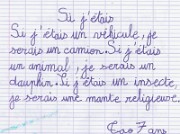 Si j'étais
Si j'étais un véhicule, je
serais un camion. Si j'étais
un animal, je serais un
dauphin. Si j'étais un insecte,
je serais une mante religieuse.
7 ans